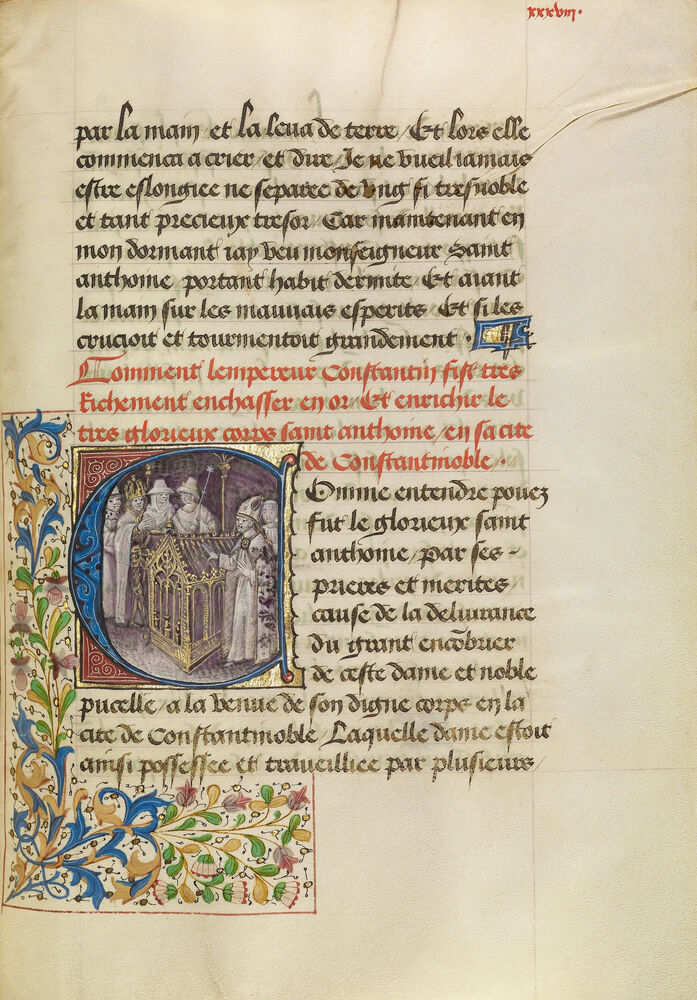 xxxviii.
par la main et la leua de terre / Et lors elle
commenca a crier / et dire / Je ne vueil iamais
estre eslongiee ne separee de vng si tresnoble
et tant precieux tresor / Car maintenant en
mon dormant iay veu monseigneur Saint
anthoine portant habit dermite / Et aiant
la main sur les mauuais esperits / Et si les
crucioit et tourmentoit grandement .
Comment lempereur Constantin fist tres
Richement enchasser en or / Et enrichir le
tres glorieux corps saint anthoine / en sa cite
de Constantinoble .
Comme entendre pouez
fut le glorieux saint
anthoine / par ses -
prieres et merites
cause de la deliurance
du grant encōbrier
de ceste dame et noble
pucelle / a la venue de son digne corps en la
cite de Constantinoble / Laquelle dame estoit
ainsi possessee et trauelliee par plusieurs /